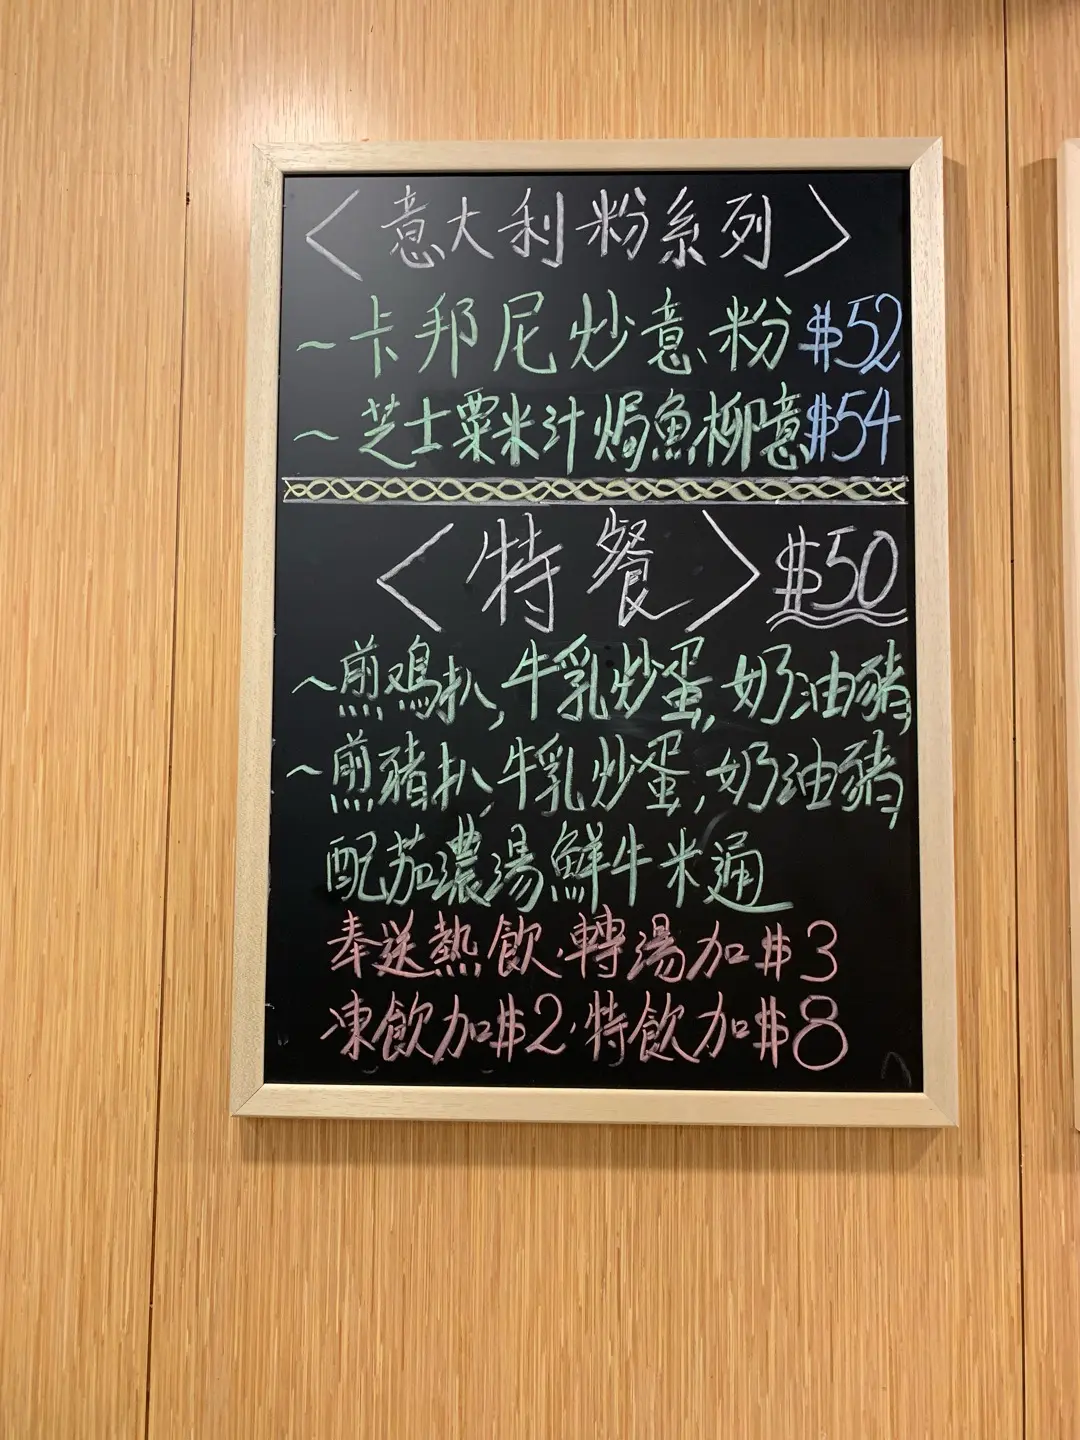 〈意大利粉系列〉
~卡邦尼炒意粉 $52
~芝士粟米汁焗魚柳意 $54
〈特餐〉 $50
~煎鸡扒,牛乳炒蛋,奶油豬
~煎豬扒,牛乳炒蛋,奶油豬
配茄濃湯鮮牛米通
奉送熱飲·轉湯加$3
凍飲加$2·特飲加$8